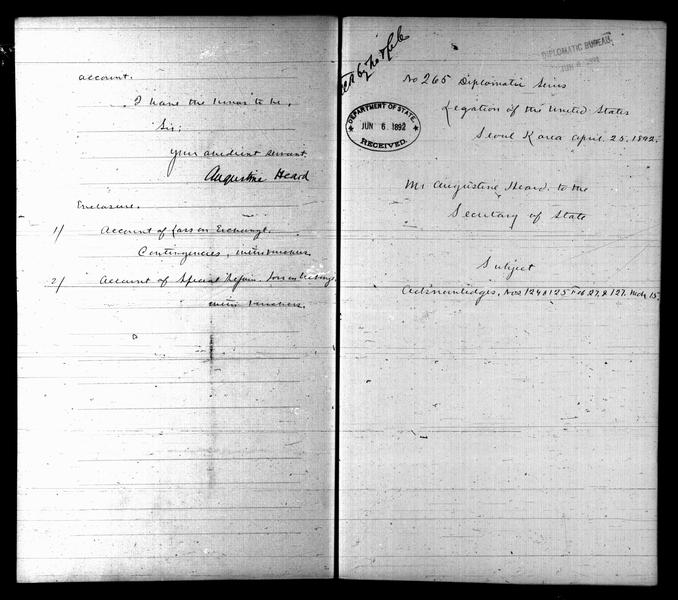 account.
I have the honor to be,
Sir:
your obedient servant,
Augustine Heard
Enclosure.
1/ Account of Loss on Exchange.
Contingencies, with vouchers.
2/ Account of Special Repair. Loss on
with vouchers.
DIPLOMATIC BUREAU.
JUN 6 1892
DEPARTMENT OF STATE.
JUN 6 1892
RECEIVED.
No 265 Diplomatic Series
Legation of the United States
Seoul Korea April. 25. 1892.
Mr Augustine Heard. to the
Secretary of State
Subject
Acknowledges, Nos 124 & 125 Feb 27, & 127. Mch 15.